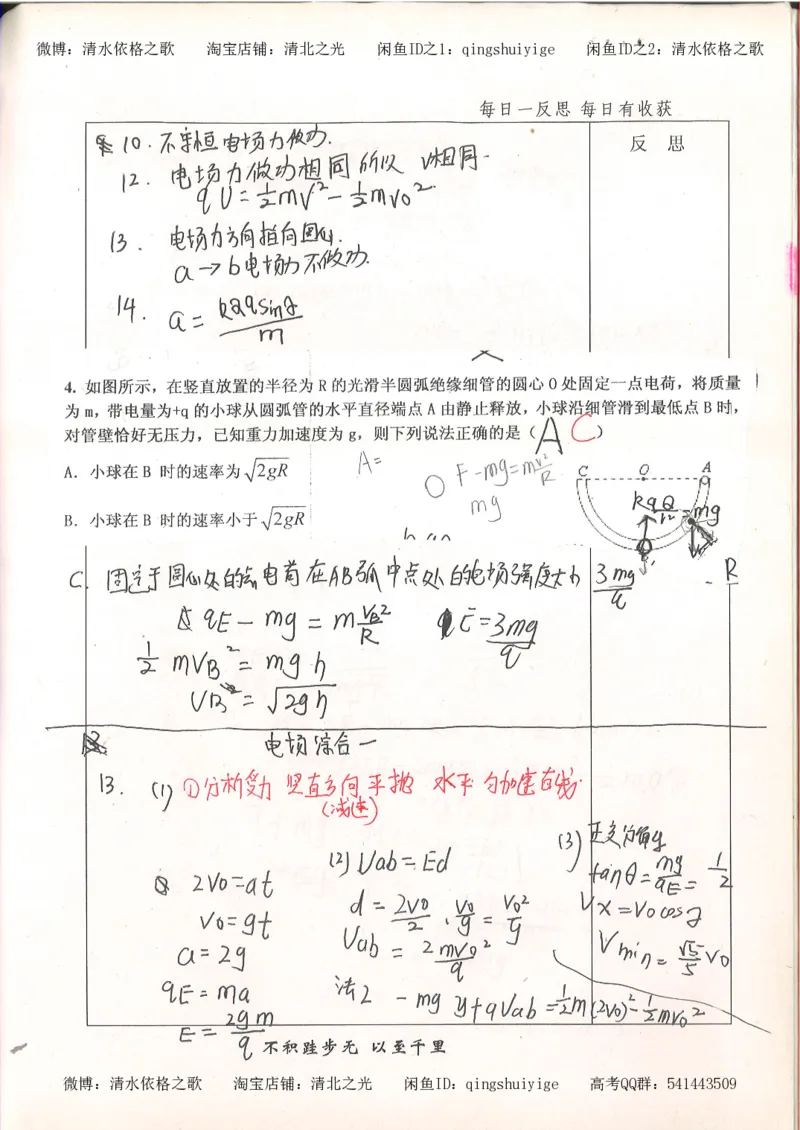 微博：清水依格之歌 淘宝店铺：清北之光 闲鱼ID之1：qingshuiyige 闲鱼ID之2：清水依格之歌
每日一反思 每日有收获
反 思
10. 不守恒 电场力做功.
12. 电场力做功相同 所以 V相同.
qU=½mV²-½mv₀²
13. 电场力方向指向圆心.
a→b电场力不做功.
14. a=
m
4. 如图所示，在竖直放置的半径为 R 的光滑半圆弧绝缘细管的圆心 O 处固定一点电荷，将质量
为 m，带电量为+q 的小球从圆弧管的水平直径端点 A 由静止释放，小球沿细管滑到最低点 B 时，
对管壁恰好无压力，已知重力加速度为 g，则下列说法正确的是（ A C ）
A= F-mg=m v²/R
mg
C O A
kqQ/r² mg
A. 小球在 B 时的速率为 √2gR
B. 小球在 B 时的速率小于 √2gR
C. 固定于圆心处的点电荷在AB弧中点处的电场强度大小 3mg/q
R
qE-mg=m VB²/R E=3mg/q
½mVB²=mgh
VB=√2gh
电场综合一
13. (1) ①分析受力 竖直方向平抛 水平匀加速直线
(减速)
2v₀=at
v₀=gt
a=2g
qE=ma
E=2gm/q
(2) Uab=Ed
d=2v₀/2·v₀/g=v₀²/g
Uab=2mv₀²/q
法2 -mgy+qUab=½m(2v₀)²-½mv₀²
(3) 正交分解
tanθ=mg/qE=1/2
Vx=V₀cos
Vmin=√5/5 v₀
不积跬步无 以至千里
微博：清水依格之歌 淘宝店铺：清北之光 闲鱼ID：qingshuiyige 高考QQ群：541443509